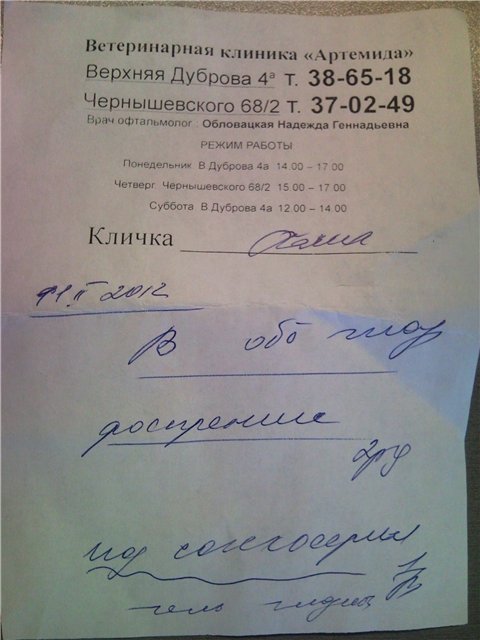 Ветеринарная клиника «Артемида»
Верхняя Дуброва 4ª т. 38-65-18
Чернышевского 68/2 т. 37-02-49
Врач офтальмолог : Обловацкая Надежда Геннадьевна
РЕЖИМ РАБОТЫ
Понедельник В Дуброва 4а 14.00 – 17.00
Четверг Чернышевского 68/2 15.00 – 17.00
Суббота В Дуброва 4а 12.00 – 14.00
Кличка
11.II 2012
В оба
2р/д
гель